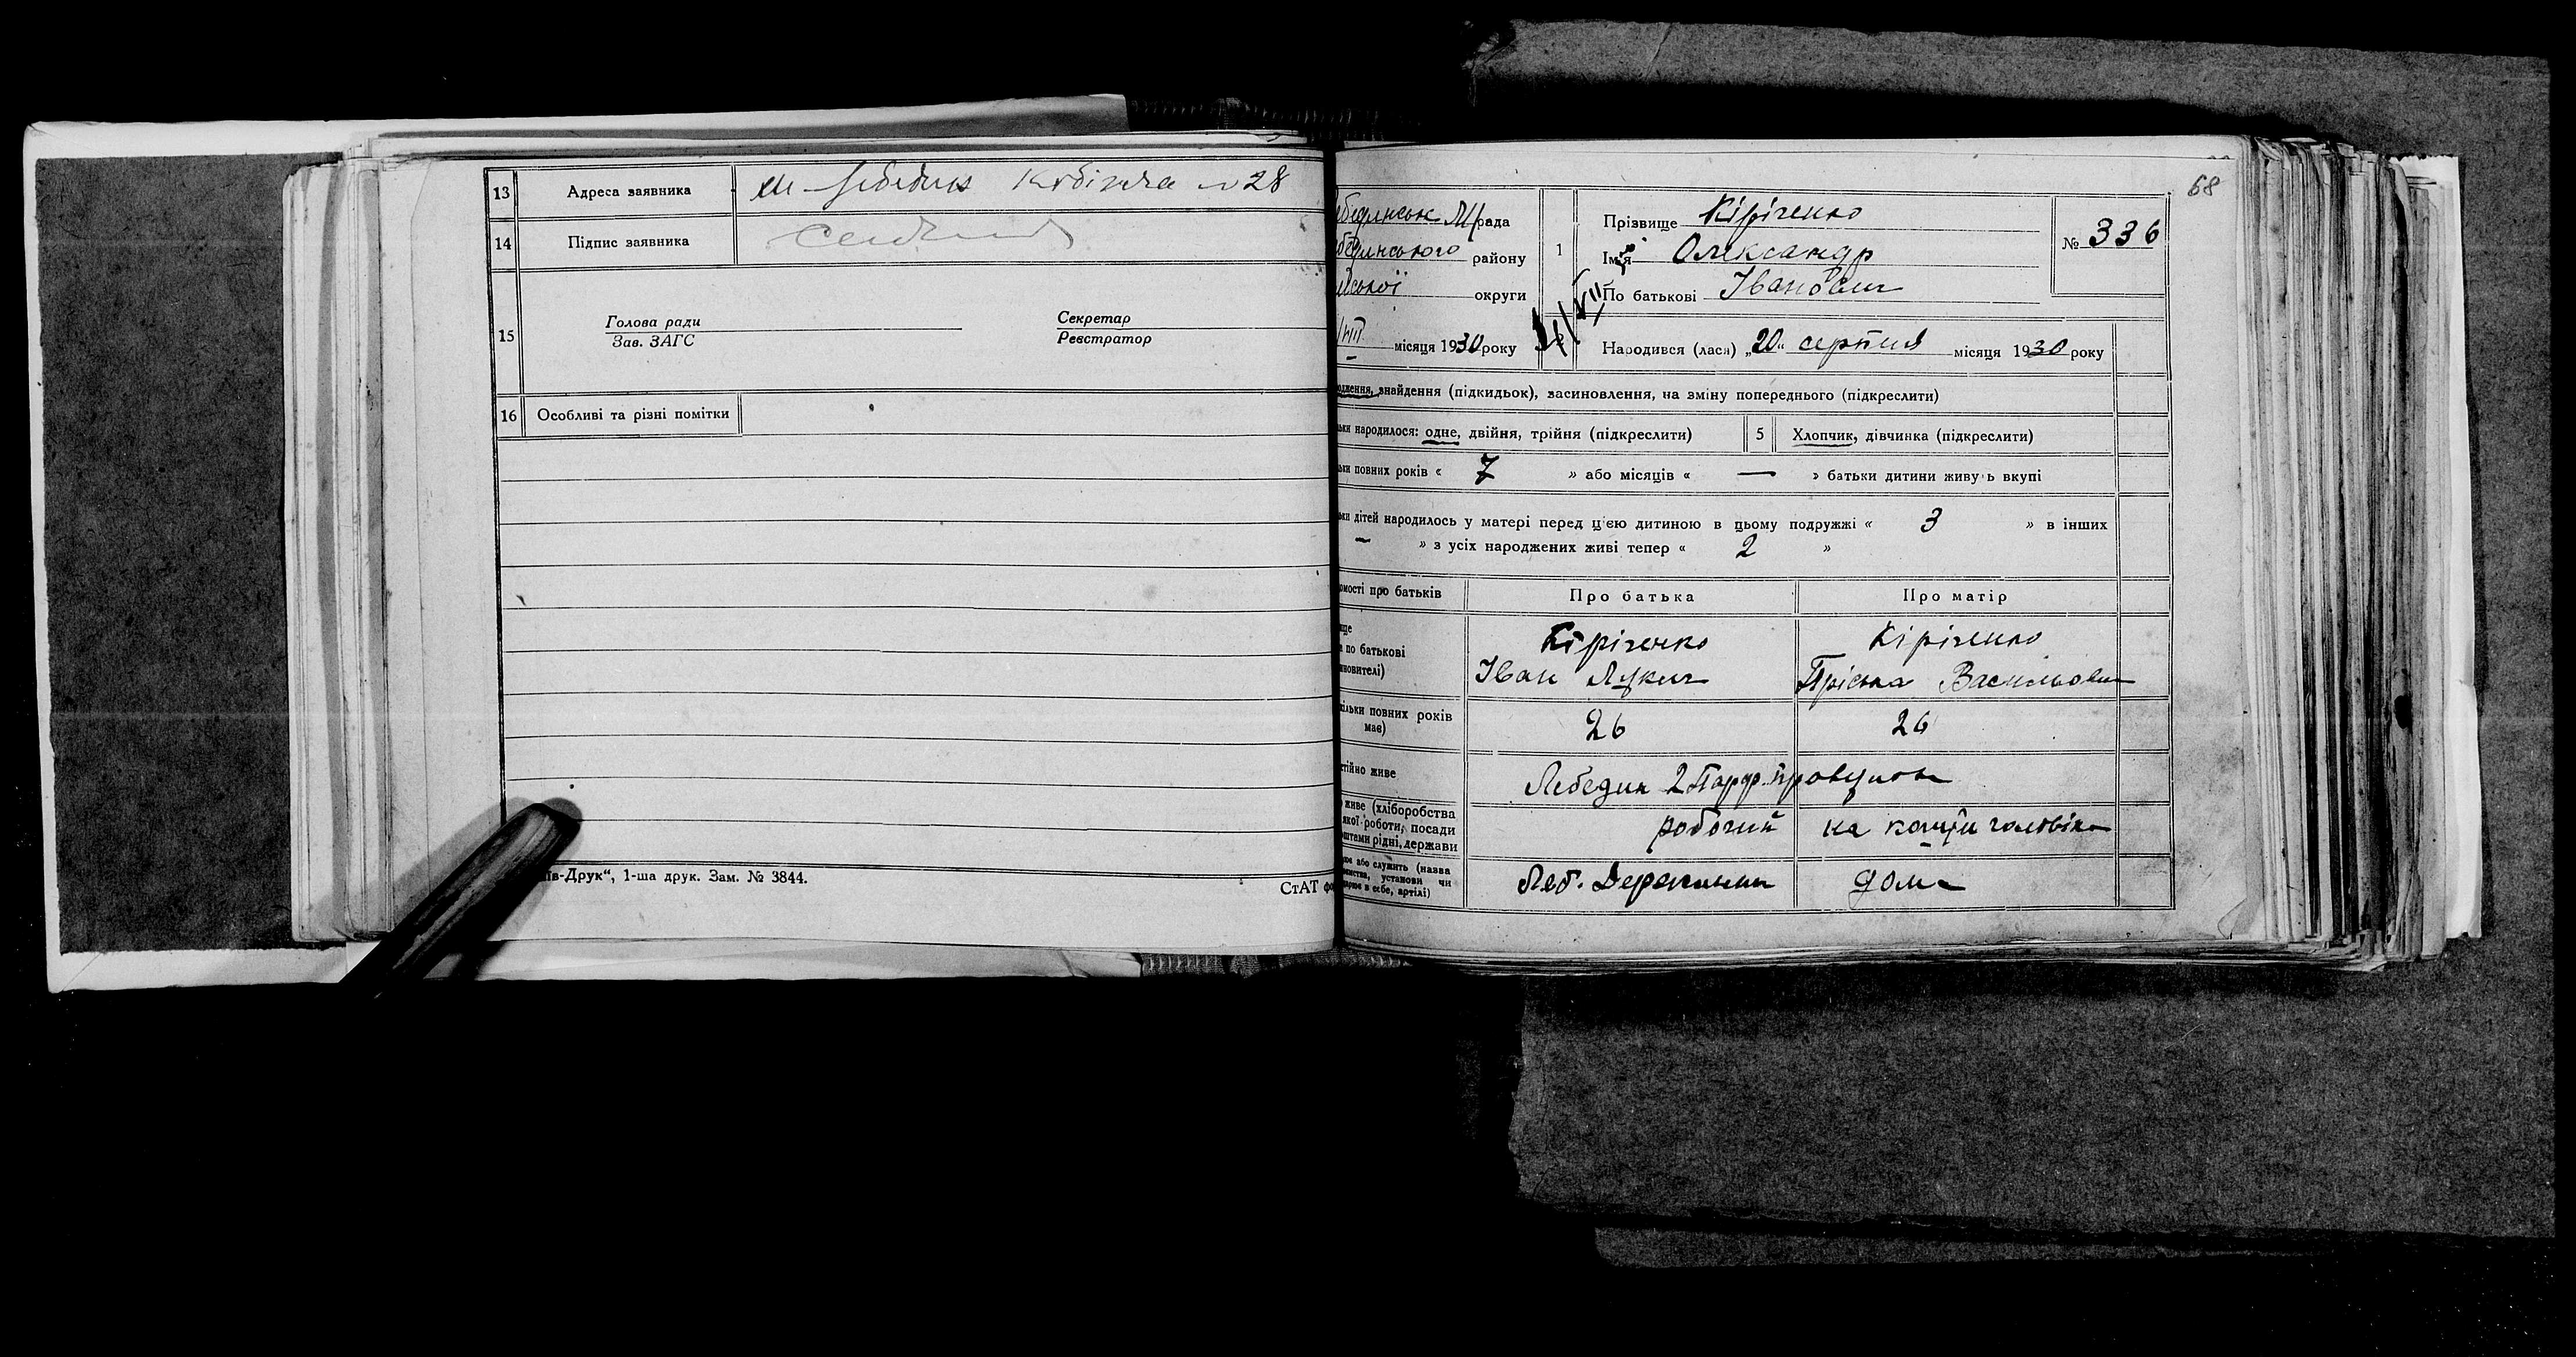 13 Адреса заявника м Лебедин Кобижча № 28
14 Підпис заявника
15 Голова ради Секретар
Зав. ЗАГС Реєстратор
16 Особливі та різні помітки
в-Друк“, 1-ша друк. Зам. № 3844.
СтАТ фо
68
бединськ М/рада
бединського району
мської округи
VIII місяця 1930 року
1 Прізвище Кіріченко
Ім'я Олександр
По батькові Іванович
№ 336
Народився (лася) „20“ серпня місяця 1930 року
одження, знайдення (підкидьок), засиновлення, на зміну попереднього (підкреслити)
ьки народилося: одне, двійня, трійня (підкреслити) 5 Хлопчик, дівчинка (підкреслити)
ьки повних років « 7 » або місяців « — » батьки дитини живуть вкупі
ьки дітей народилось у матері перед цією дитиною в цьому подружжі « 3 » в інших
— » з усіх народжених живі тепер « 2 »
омості про батьків Про батька Про матір
ще
а по батькові
новителі)
Кіріченко Кіріченко
Іван Лукич Пріська Васильовн
ільки повних років має) 26 26
тійно живе Лебедин 2 Парф. провулок
живе (хліборобства
якої роботи, посади
штами рідні, держави
робочий на кошти чоловіка
або служить (назва
установи чи
в себе, артілі)
Леб. дома